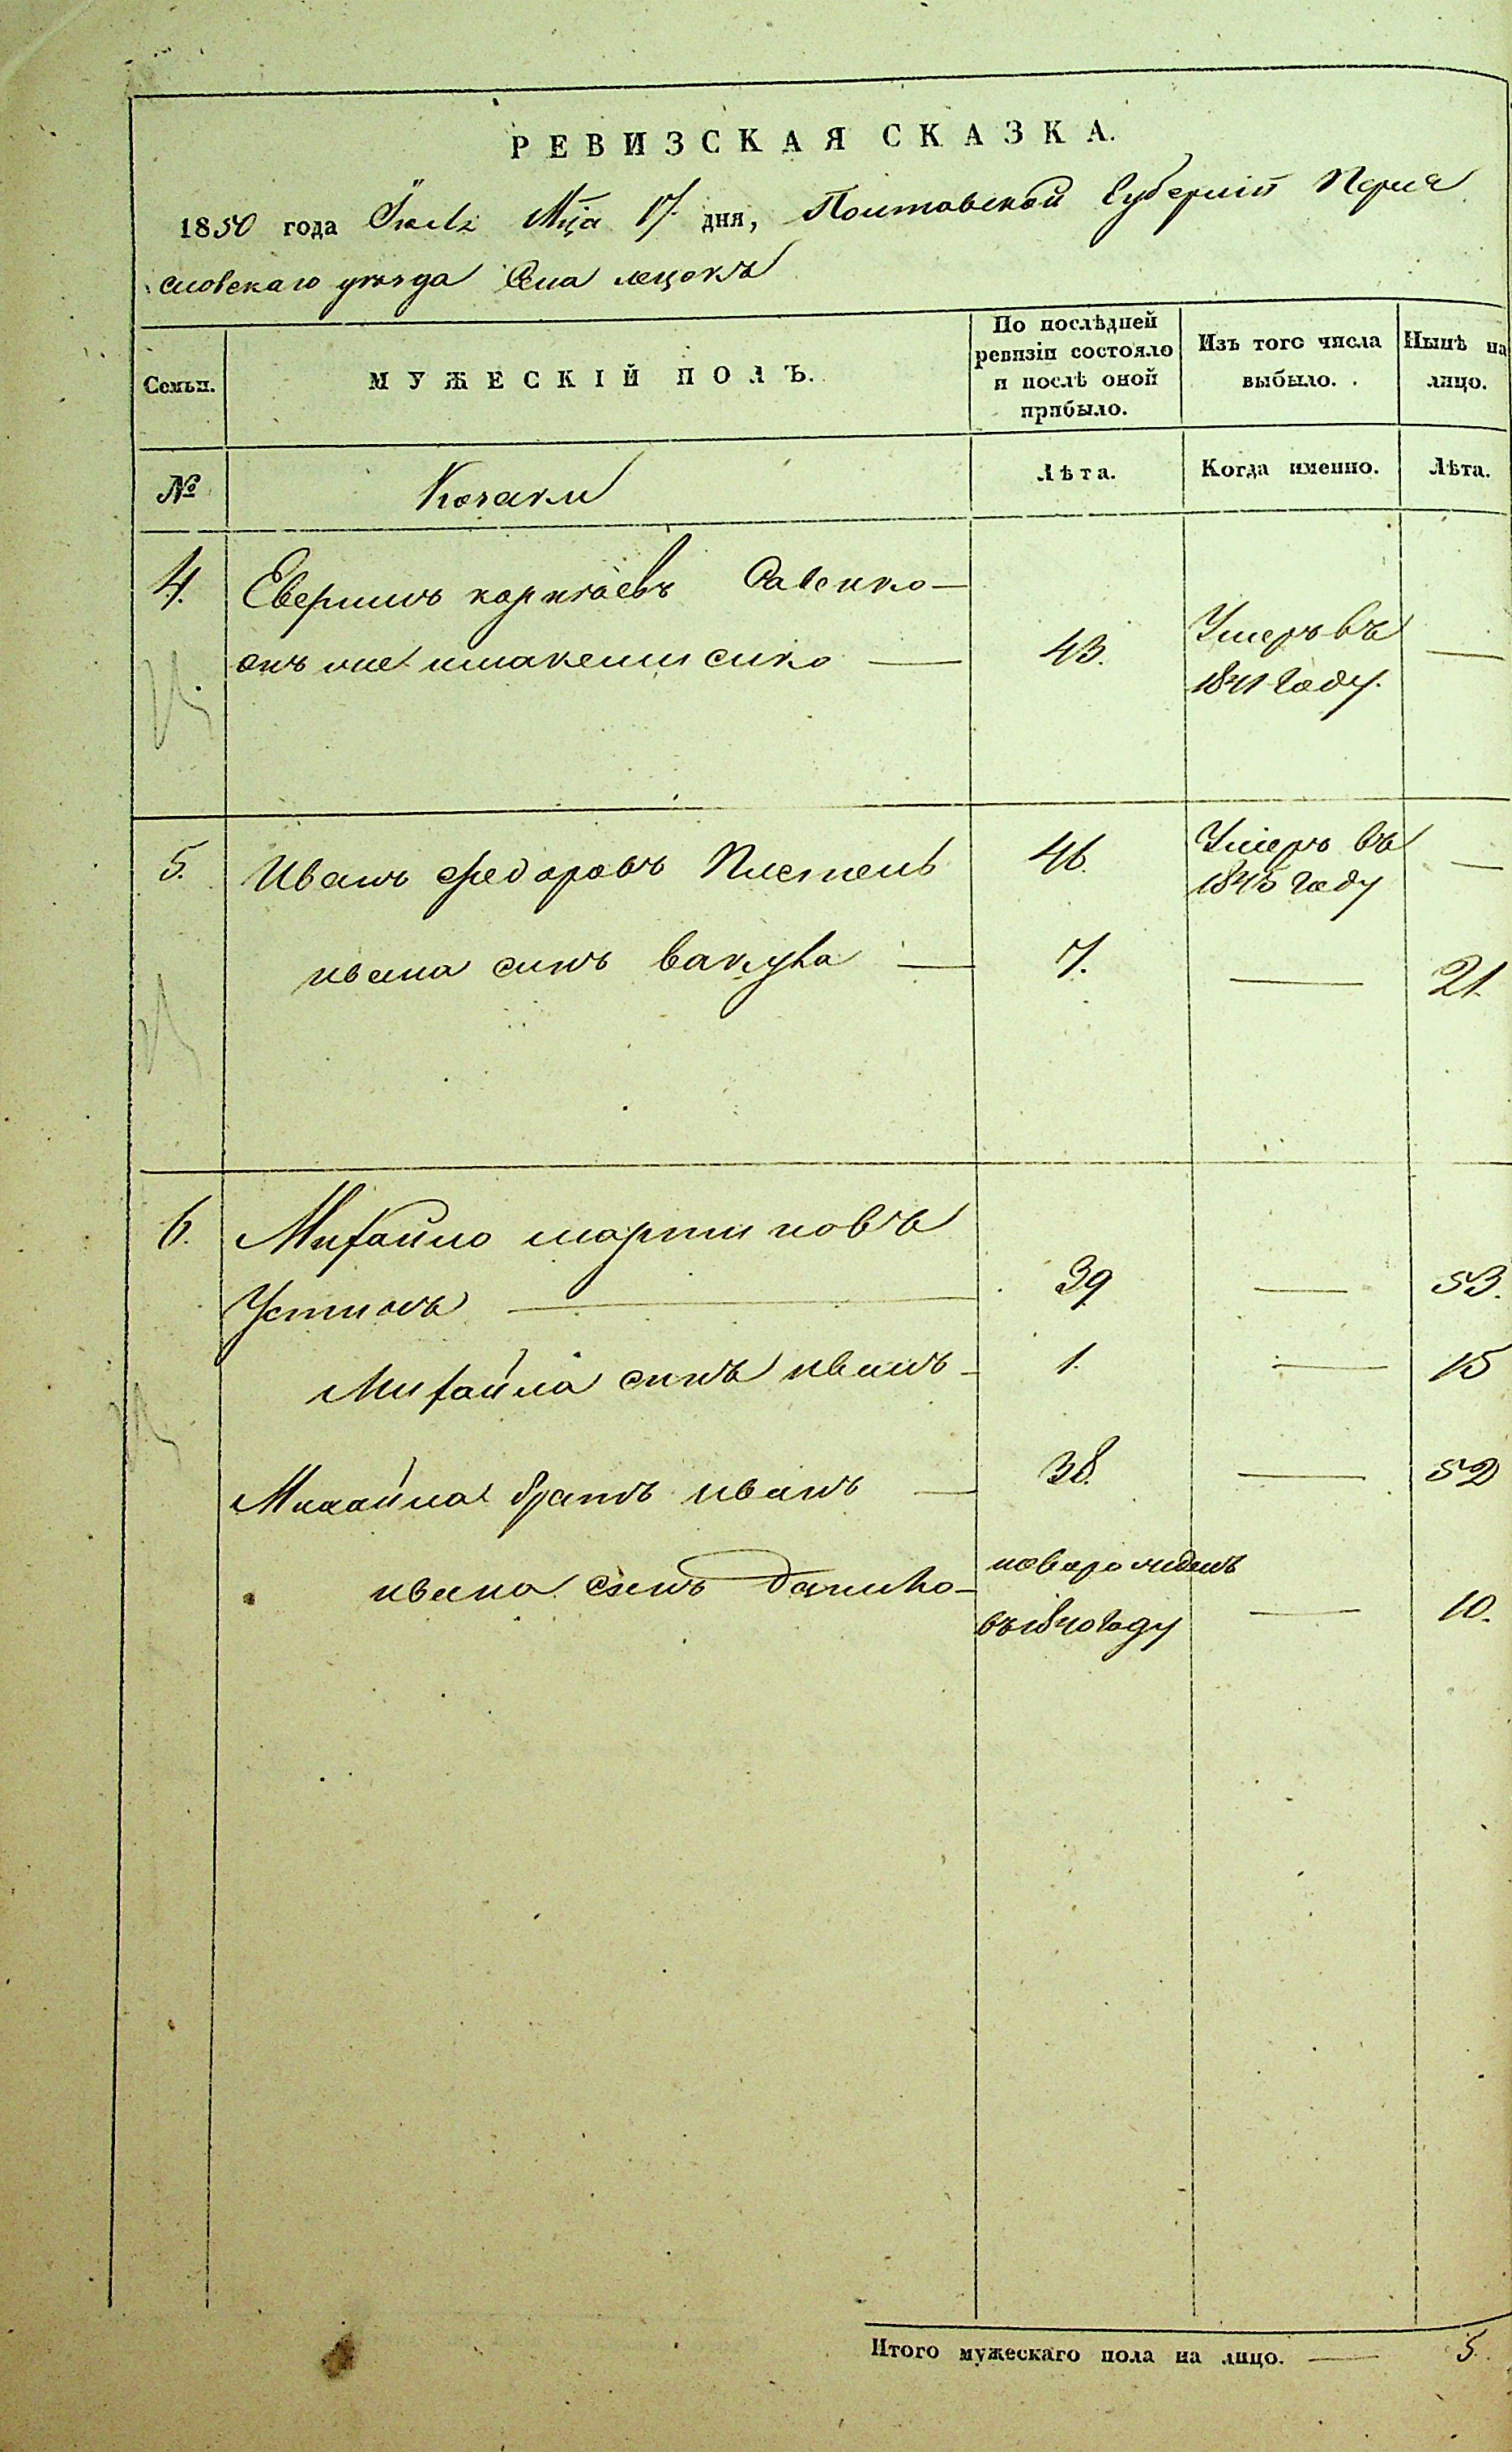 РЕВИЗСКАЯ СКАЗКА.
1850 года Мца 17. дня, Полтавской Губерніи Перея
словскаго уезда Села лецокъ
Семьи.
МУЖЕСКІЙ ПОЛЪ.
По послѣдней
ревизіи состояло
и послѣ оной
прибыло.
Изъ того числа
выбыло.
Нынѣ на
лицо.
№
Козаки
Лѣта.
Когда именно.
Лѣта.
4. Савенко —
онъ же —— 43. Умеръ въ ——
1841 Году.
5. Иванъ Федоровъ Плетень 46. Умеръ въ ——
Году
ивана синъ вакула —— 7. —— 21.
6. Михайло мартиновъ
Устинъ —— 39 —— 53.
Михайла синъ иванъ — 1. —— 15
Михайла братъ иванъ —— 38. —— 52
ивана синъ данило — новорожденъ
въ 1840 Году —— 10.
Итого мужескаго пола на лицо. —— 5.